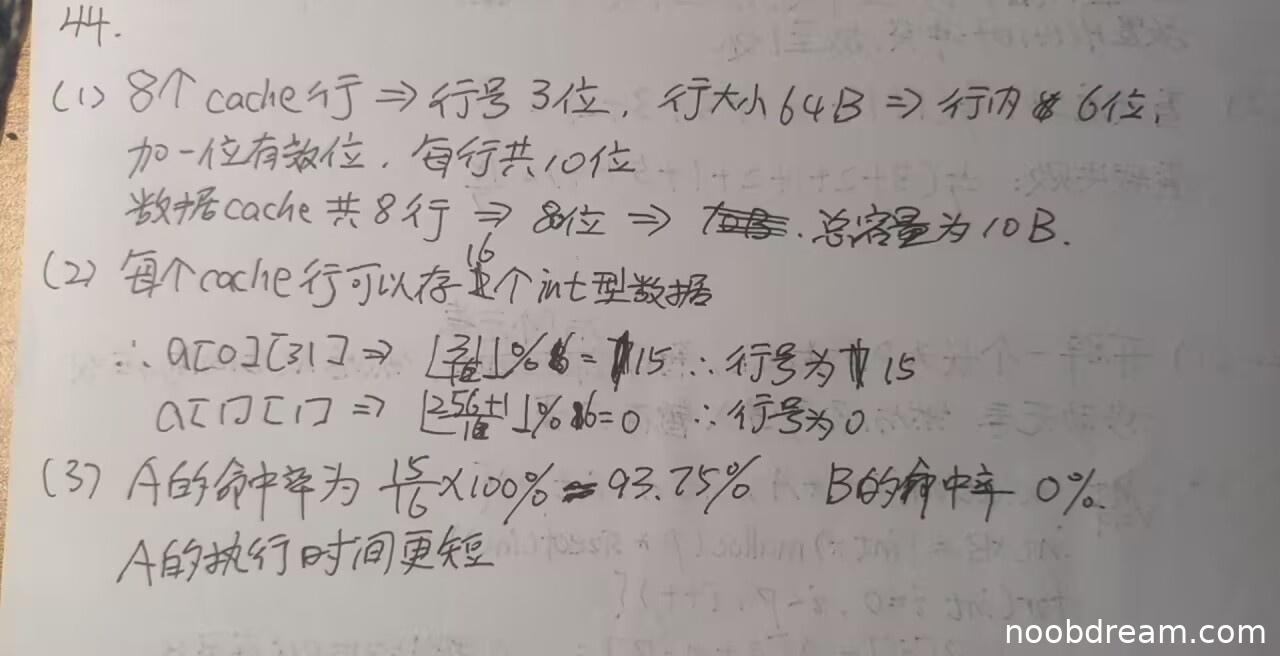 44.
(1) 8个cache行 ⇒ 行号3位, 行大小64B ⇒ 行内 6位,
加一位有效位, 每行共10位
数据cache共8行 ⇒ 8位 ⇒ . 总容量为10B.
(2) 每个cache行可以存16个int型数据
∴ a[0][31] ⇒ ⌊31/16⌋%16 = 15 ∴ 行号为15
a[1][1] ⇒ ⌊(256+1)/16⌋%16 = 0 ∴ 行号为0
(3) A的命中率为 15/16 × 100% = 93.75% B的命中率 0%.
A的执行时间更短
noobdream.com